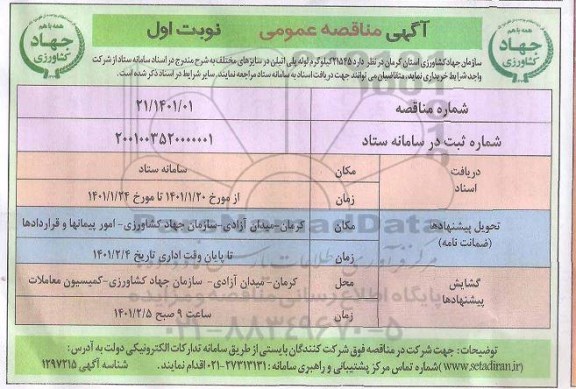 آگهی مناقصه عمومی نوبت اول
همه با هم
جهاد
کشاورزی
همه با هم
جهاد
کشاورزی
سازمان جهاد کشاورزی استان کرمان در نظر دارد ۲۱۵۲۵ کیلوگرم لوله پلی اتیلن در سایزهای مختلف به شرح مندرج در اسناد سامانه ستاد از شرکت
واجد شرایط خریداری نماید، متقاضیان می توانند جهت دریافت اسناد به سامانه ستاد مراجعه نمایند، سایر شرایط در اسناد ذکر شده است.
شماره مناقصه ۲۱/۱۴۰۱/۰۱
شماره ثبت در سامانه ستاد ۲۰۰۱۰۰۳۵۲۰۰۰۰۰۰۱
دریافت اسناد
مکان سامانه ستاد
زمان از مورخ ۱۴۰۱/۱/۲۰ تا مورخ ۱۴۰۱/۱/۲۴
تحویل پیشنهادها
(ضمانت نامه)
مکان کرمان-میدان آزادی-سازمان جهاد کشاورزی- امور پیمانها و قراردادها
زمان تا پایان وقت اداری تاریخ ۱۴۰۱/۲/۴
گشایش
پیشنهادها
محل کرمان-میدان آزادی- سازمان جهاد کشاورزی-کمیسیون معاملات
زمان ساعت ۹ صبح ۱۴۰۱/۲/۵
۰۲۱-۸۸۳۴۹۶۷۰-۵
توضیحات: جهت شرکت در مناقصه فوق شرکت کنندگان بایستی از طریق سامانه تدارکات الکترونیکی دولت به آدرس:
(www.setadiran.ir) شماره تماس مرکز پشتیبانی و راهبری سامانه: ۲۷۳۱۳۱۳۱-۰۲۱ اقدام نمایند. شناسه آگهی ۱۲۹۷۳۱۵